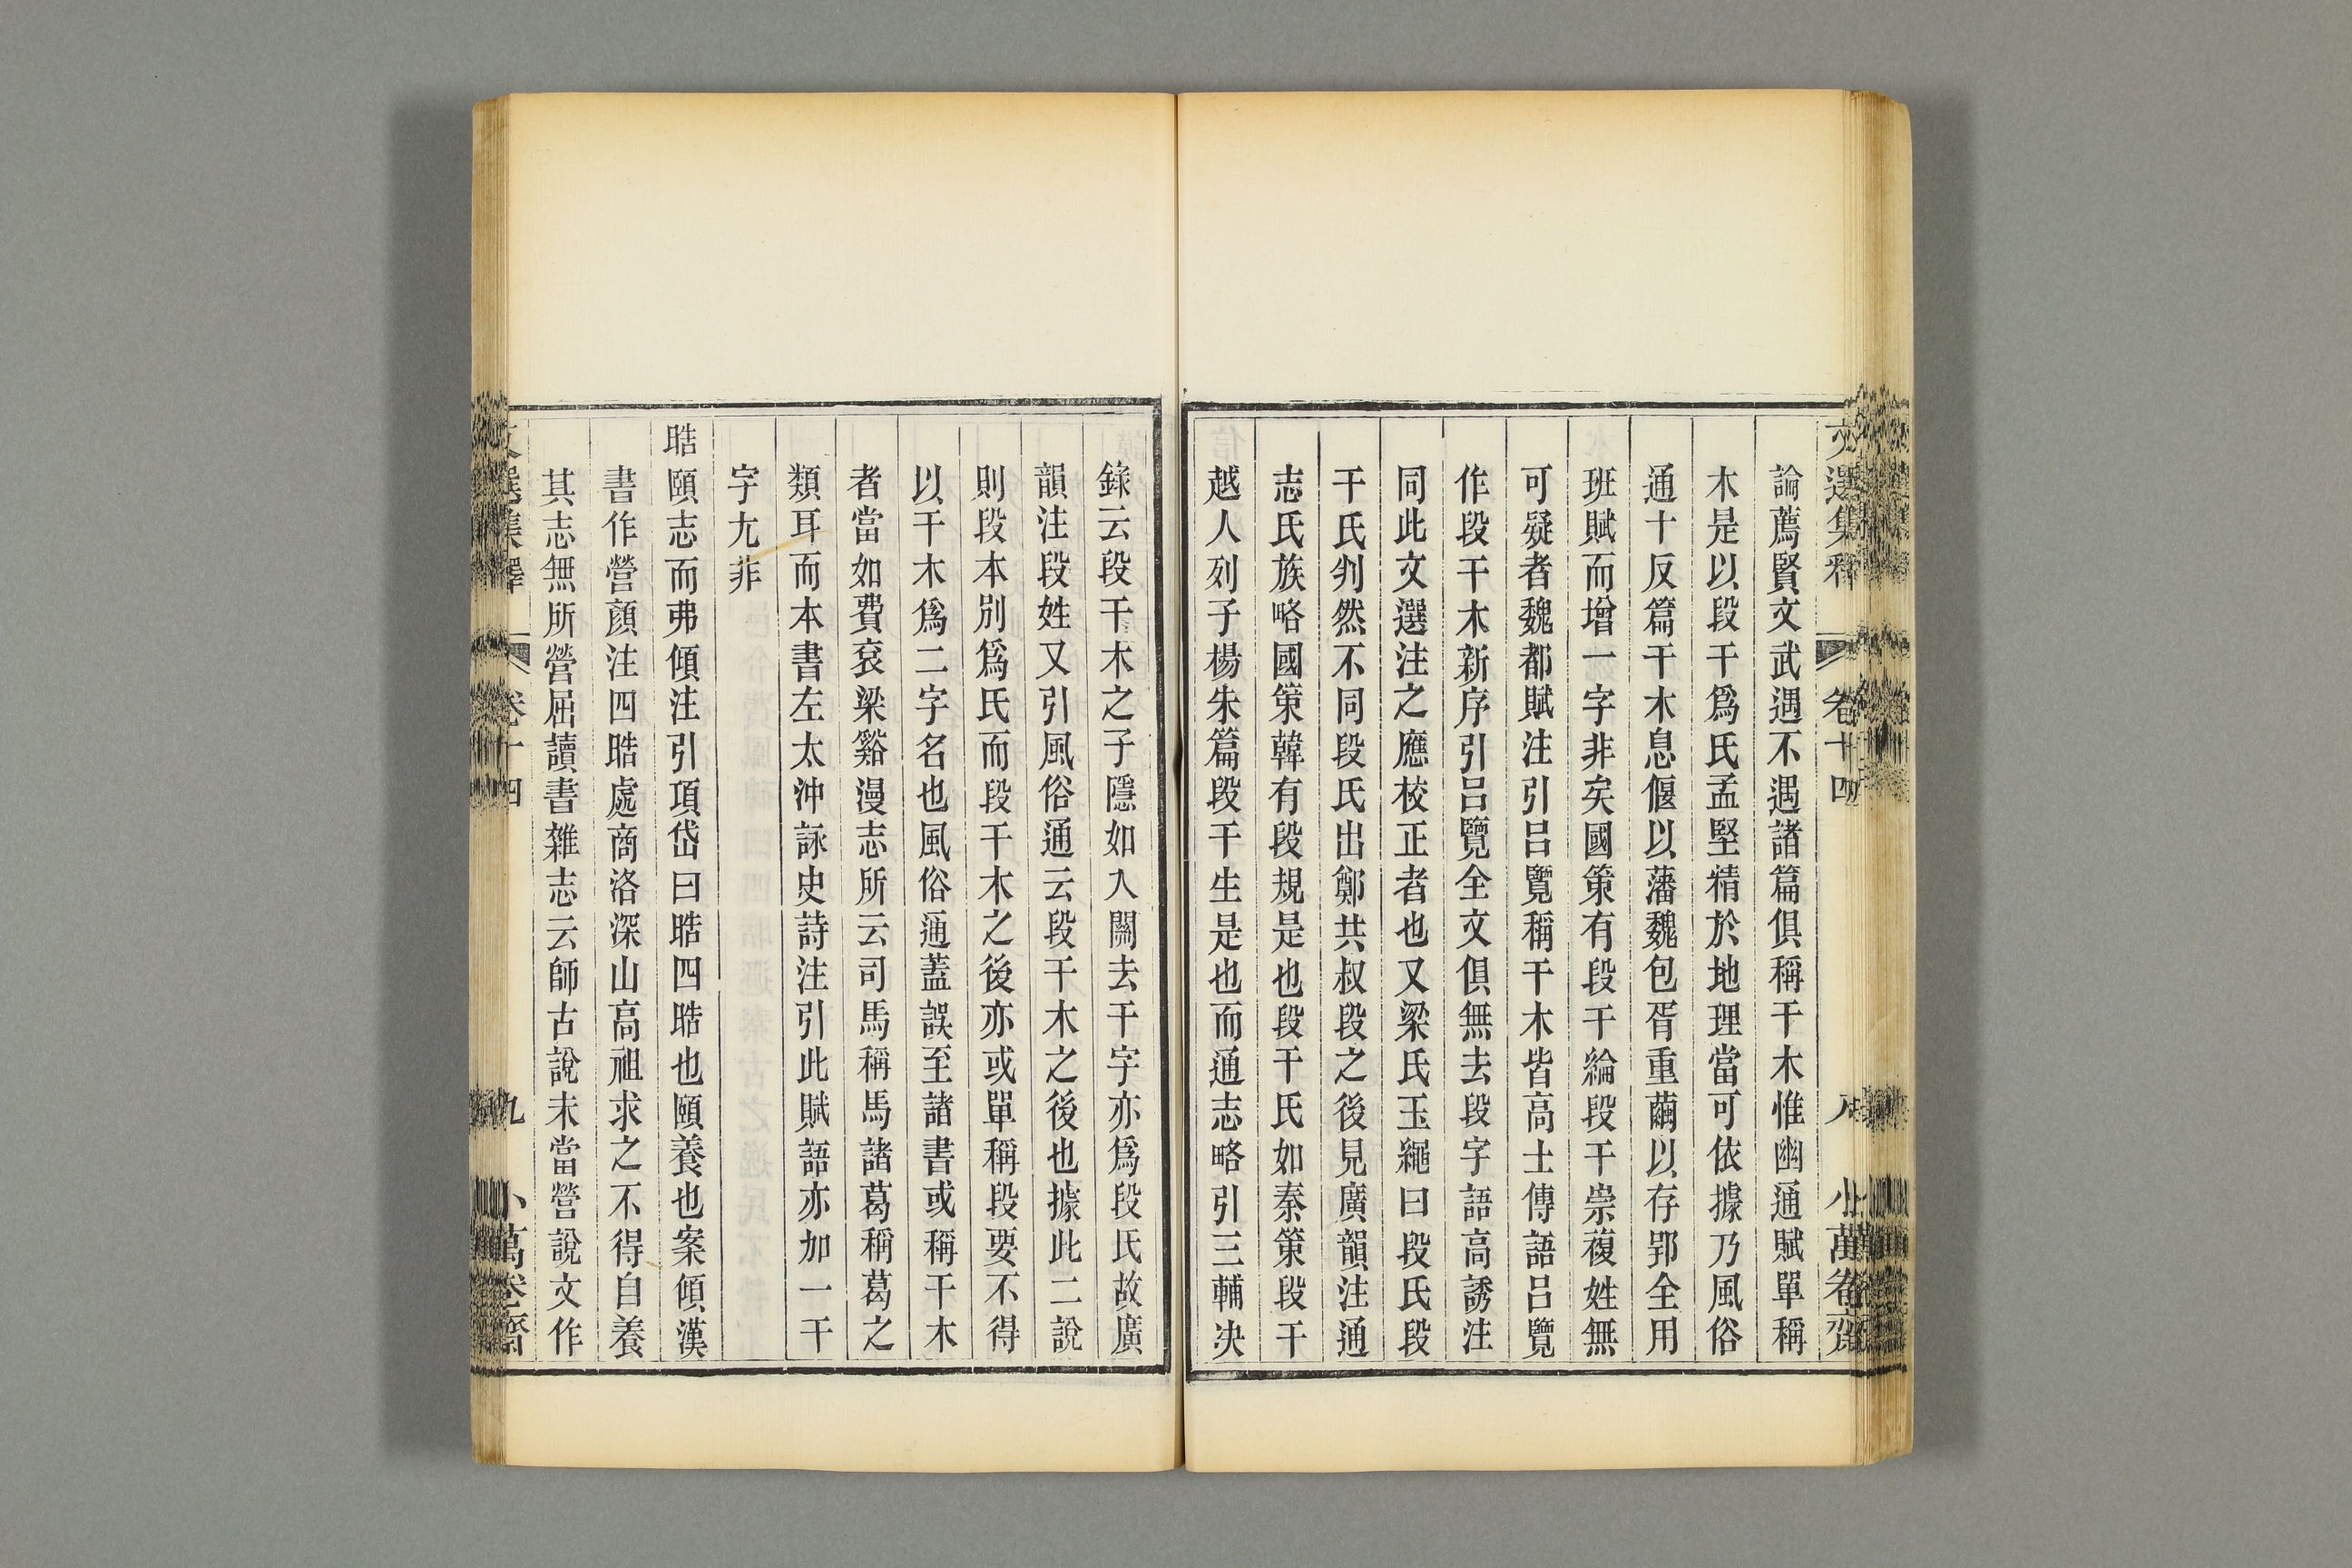 文選集釋 卷十四 八 小萬卷齋
論薦賢文武遇不遇諸篇俱稱干木惟幽通賦單稱
木是以段干爲氏孟堅精於地理當可依據乃風俗
通十反篇干木息偃以藩魏包胥重繭以存郢全用
班賦而增一字非矣國策有段干綸段干崇複姓無
可疑者魏都賦注引呂覽稱干木皆高士傳語呂覽
作段干木新序引呂覽全文俱無去段字語高誘注
同此文選注之應校正者也又梁氏玉繩曰段氏段
干氏判然不同段氏出鄭共叔段之後見廣韻注通
志氏族略國策韓有段規是也段干氏如秦策段干
越人列子楊朱篇段干生是也而通志略引三輔决
錄云段干木之子隱如入關去干字亦爲段氏故廣
韻注段姓又引風俗通云段干木之後也據此二說
則段本別爲氏而段干木之後亦或單稱段要不得
以干木爲二字名也風俗通蓋誤至諸書或稱干木
者當如費袞梁谿漫志所云司馬稱馬諸葛稱葛之
類耳而本書左太沖詠史詩注引此賦語亦加一干
字尤非
晧頤志而弗傾注引項岱曰晧四晧也頤養也案傾漢
書作營顏注四晧處商洛深山高祖求之不得自養
其志無所營屈讀書雜志云師古說未當營說文作
文選集釋 卷十四 九 小萬卷齋